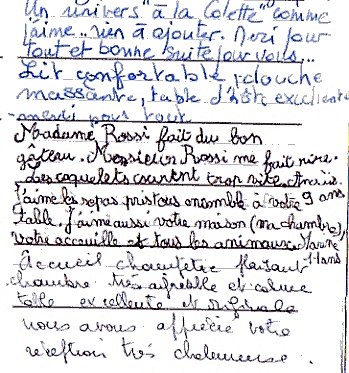 Un univers "à la Colette" comme
j'aime.. rien à ajouter. Merci pour
tout et bonne suite pour vous...
Lit confortable, douche
massante, table d'hôte excellente
- merci pour tout
Madame Rossi fait du bon
gâteau. Monsieur Rossi me fait rire.
Les coquelets courent trop vite. Anaïs
J'aime les repas pris tous ensemble à votre 9 ans
table. J'aime aussi votre maison (ma chambre),
votre accueille et tous les animaux. Marine
11 ans
Accueil champêtre plaisant
chambre très agréable et calme
table excellente et originale
nous avons apprécié votre
réception très chaleureuse.